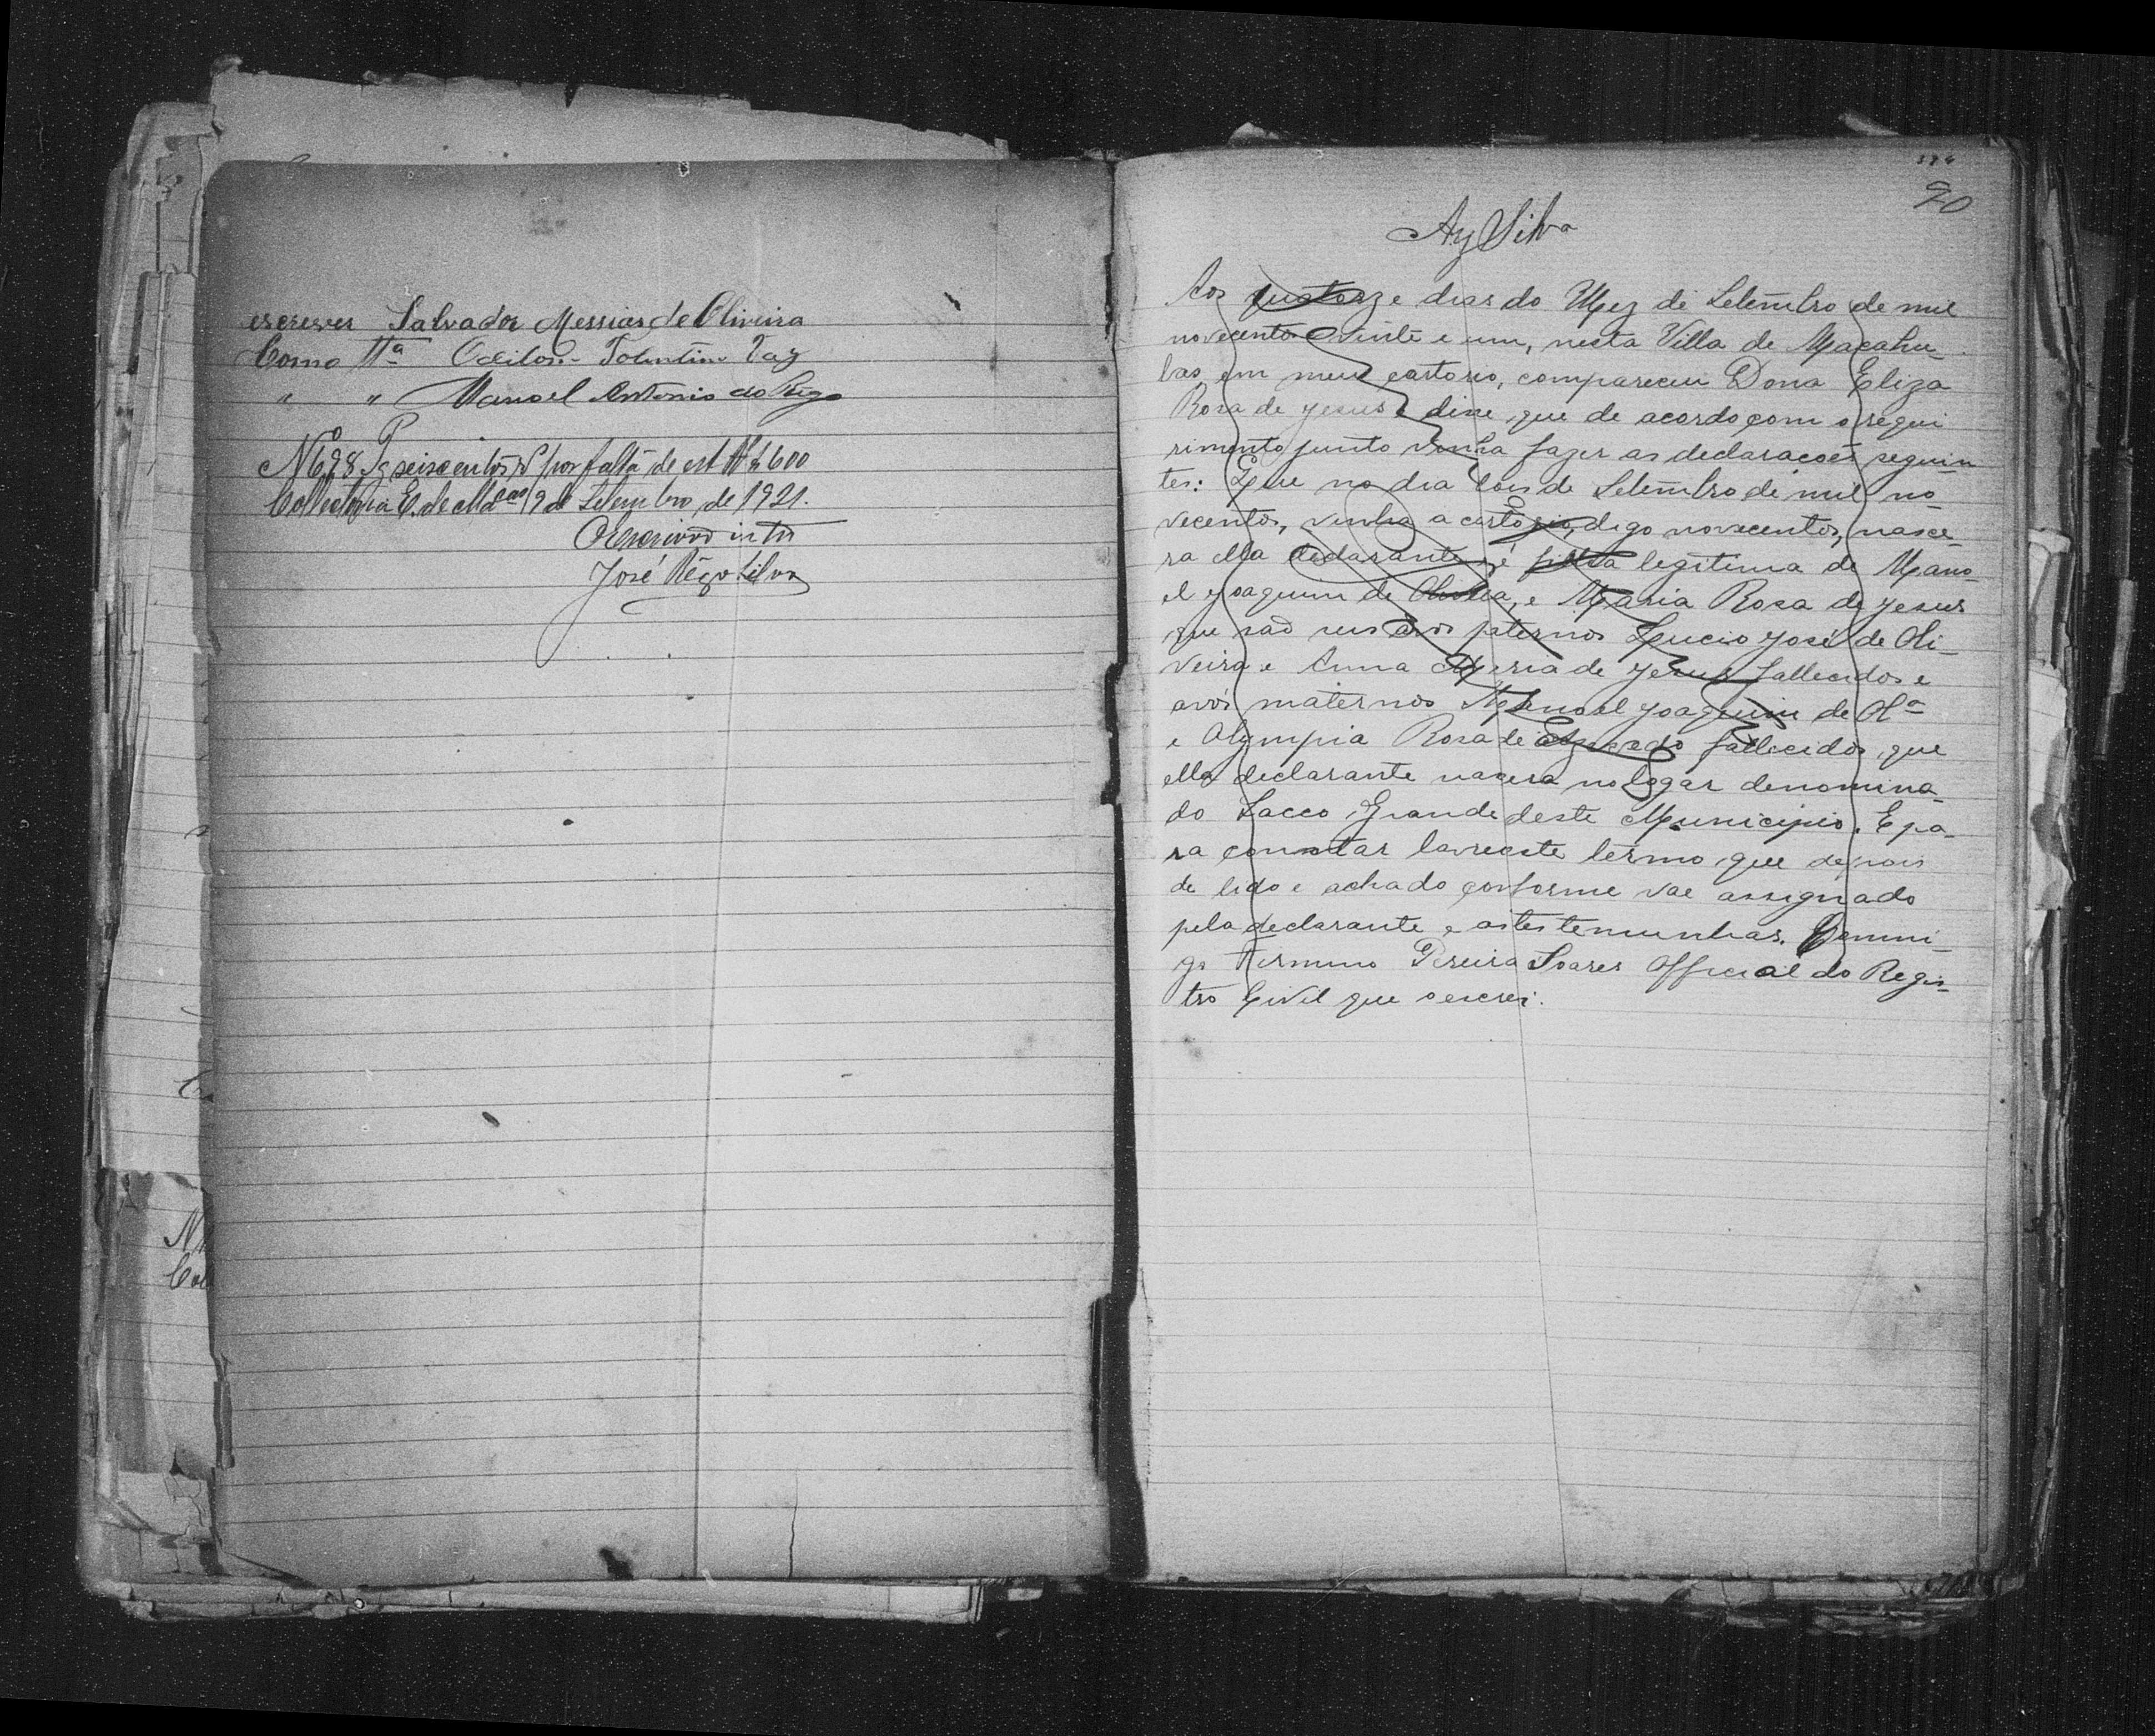 escrever Salvador Messias de Oliveira
Como Tª Odilon Tolentino Vaz
" " Manoel Antonio do Rego
Nº 698 Pg seiscentos rs por falta de est. Rs 600
Collectoria E. de Mac.as 19 de Setembro de 1921.
O Escrivão intº
José Rêgo Silva
90
Ay Silva
Aos quatorze dias do Mez de Setembro de mil
novecentos e vinte e um, nesta Villa de Macahu-
bas em meu cartorio, compareceu Dona Eliza
Rosa de Jesus e disse que de acordo com o requi
rimento junto vinha fazer as declaracoes seguin
tes: Que no dia dois de Setembro de mil no
vecentos, vinha a cartorio, digo novecentos, nasce-
ra ella declarante, é filha legitima de Mano-
el Joaquim de Oliveira, e Maria Rosa de Jesus
que são seus avós paternos Lucio José de Oli-
veira e Anna Maria de Jesus fallecidos e
avós maternos Manoel Joaquim de Olª
e Olympia Rosa de Azevedo fallecidos, que
ella declarante nacera no logar denomina-
do Sacco Grande deste Municipio. E pa-
ra constar lavrei este termo que depois
de lido e achado conforme vae assignado
pela declarante e as testemunhas. Eu
Firmino Pereira Soares Official do Regis-
tro Civil que o escrei.